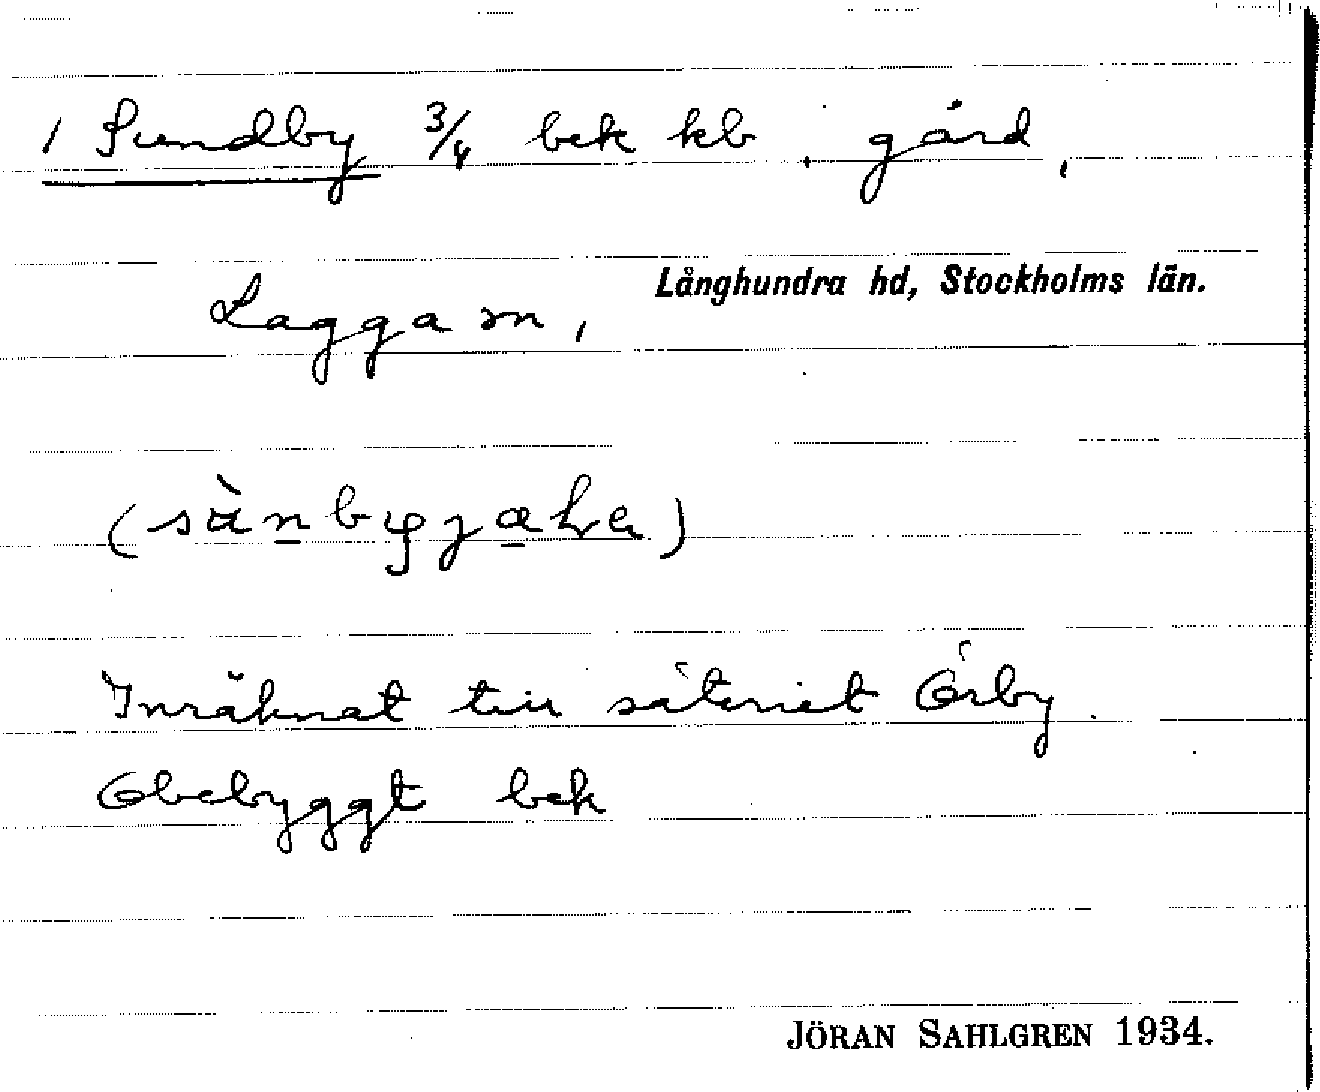 1 Sundby 3/4 bek kb gård,
Långhundra hd, Stockholms län.
Lagga sn,
Inräknat till säteriet Örby.
Obebyggt bek
JÖRAN SAHLGREN 1934.